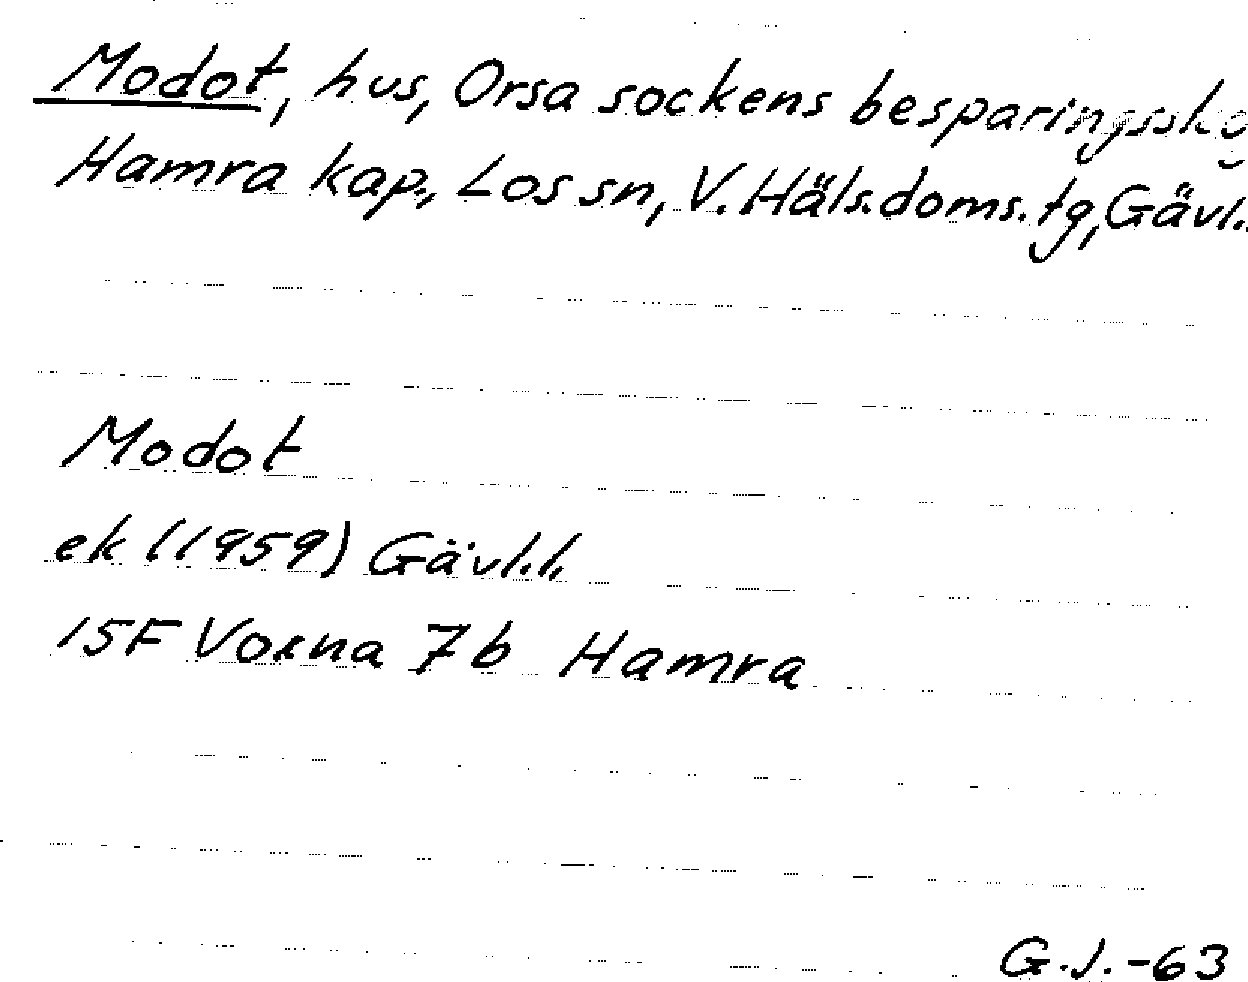 Modot, hus, Orsa sockens besparingssko
Hamra kap., Los sn, V. Häls.doms. tg, Gävl.
Modot
ek (1959) Gävl.l.
15F Voxna 7b Hamra
G.J.-63